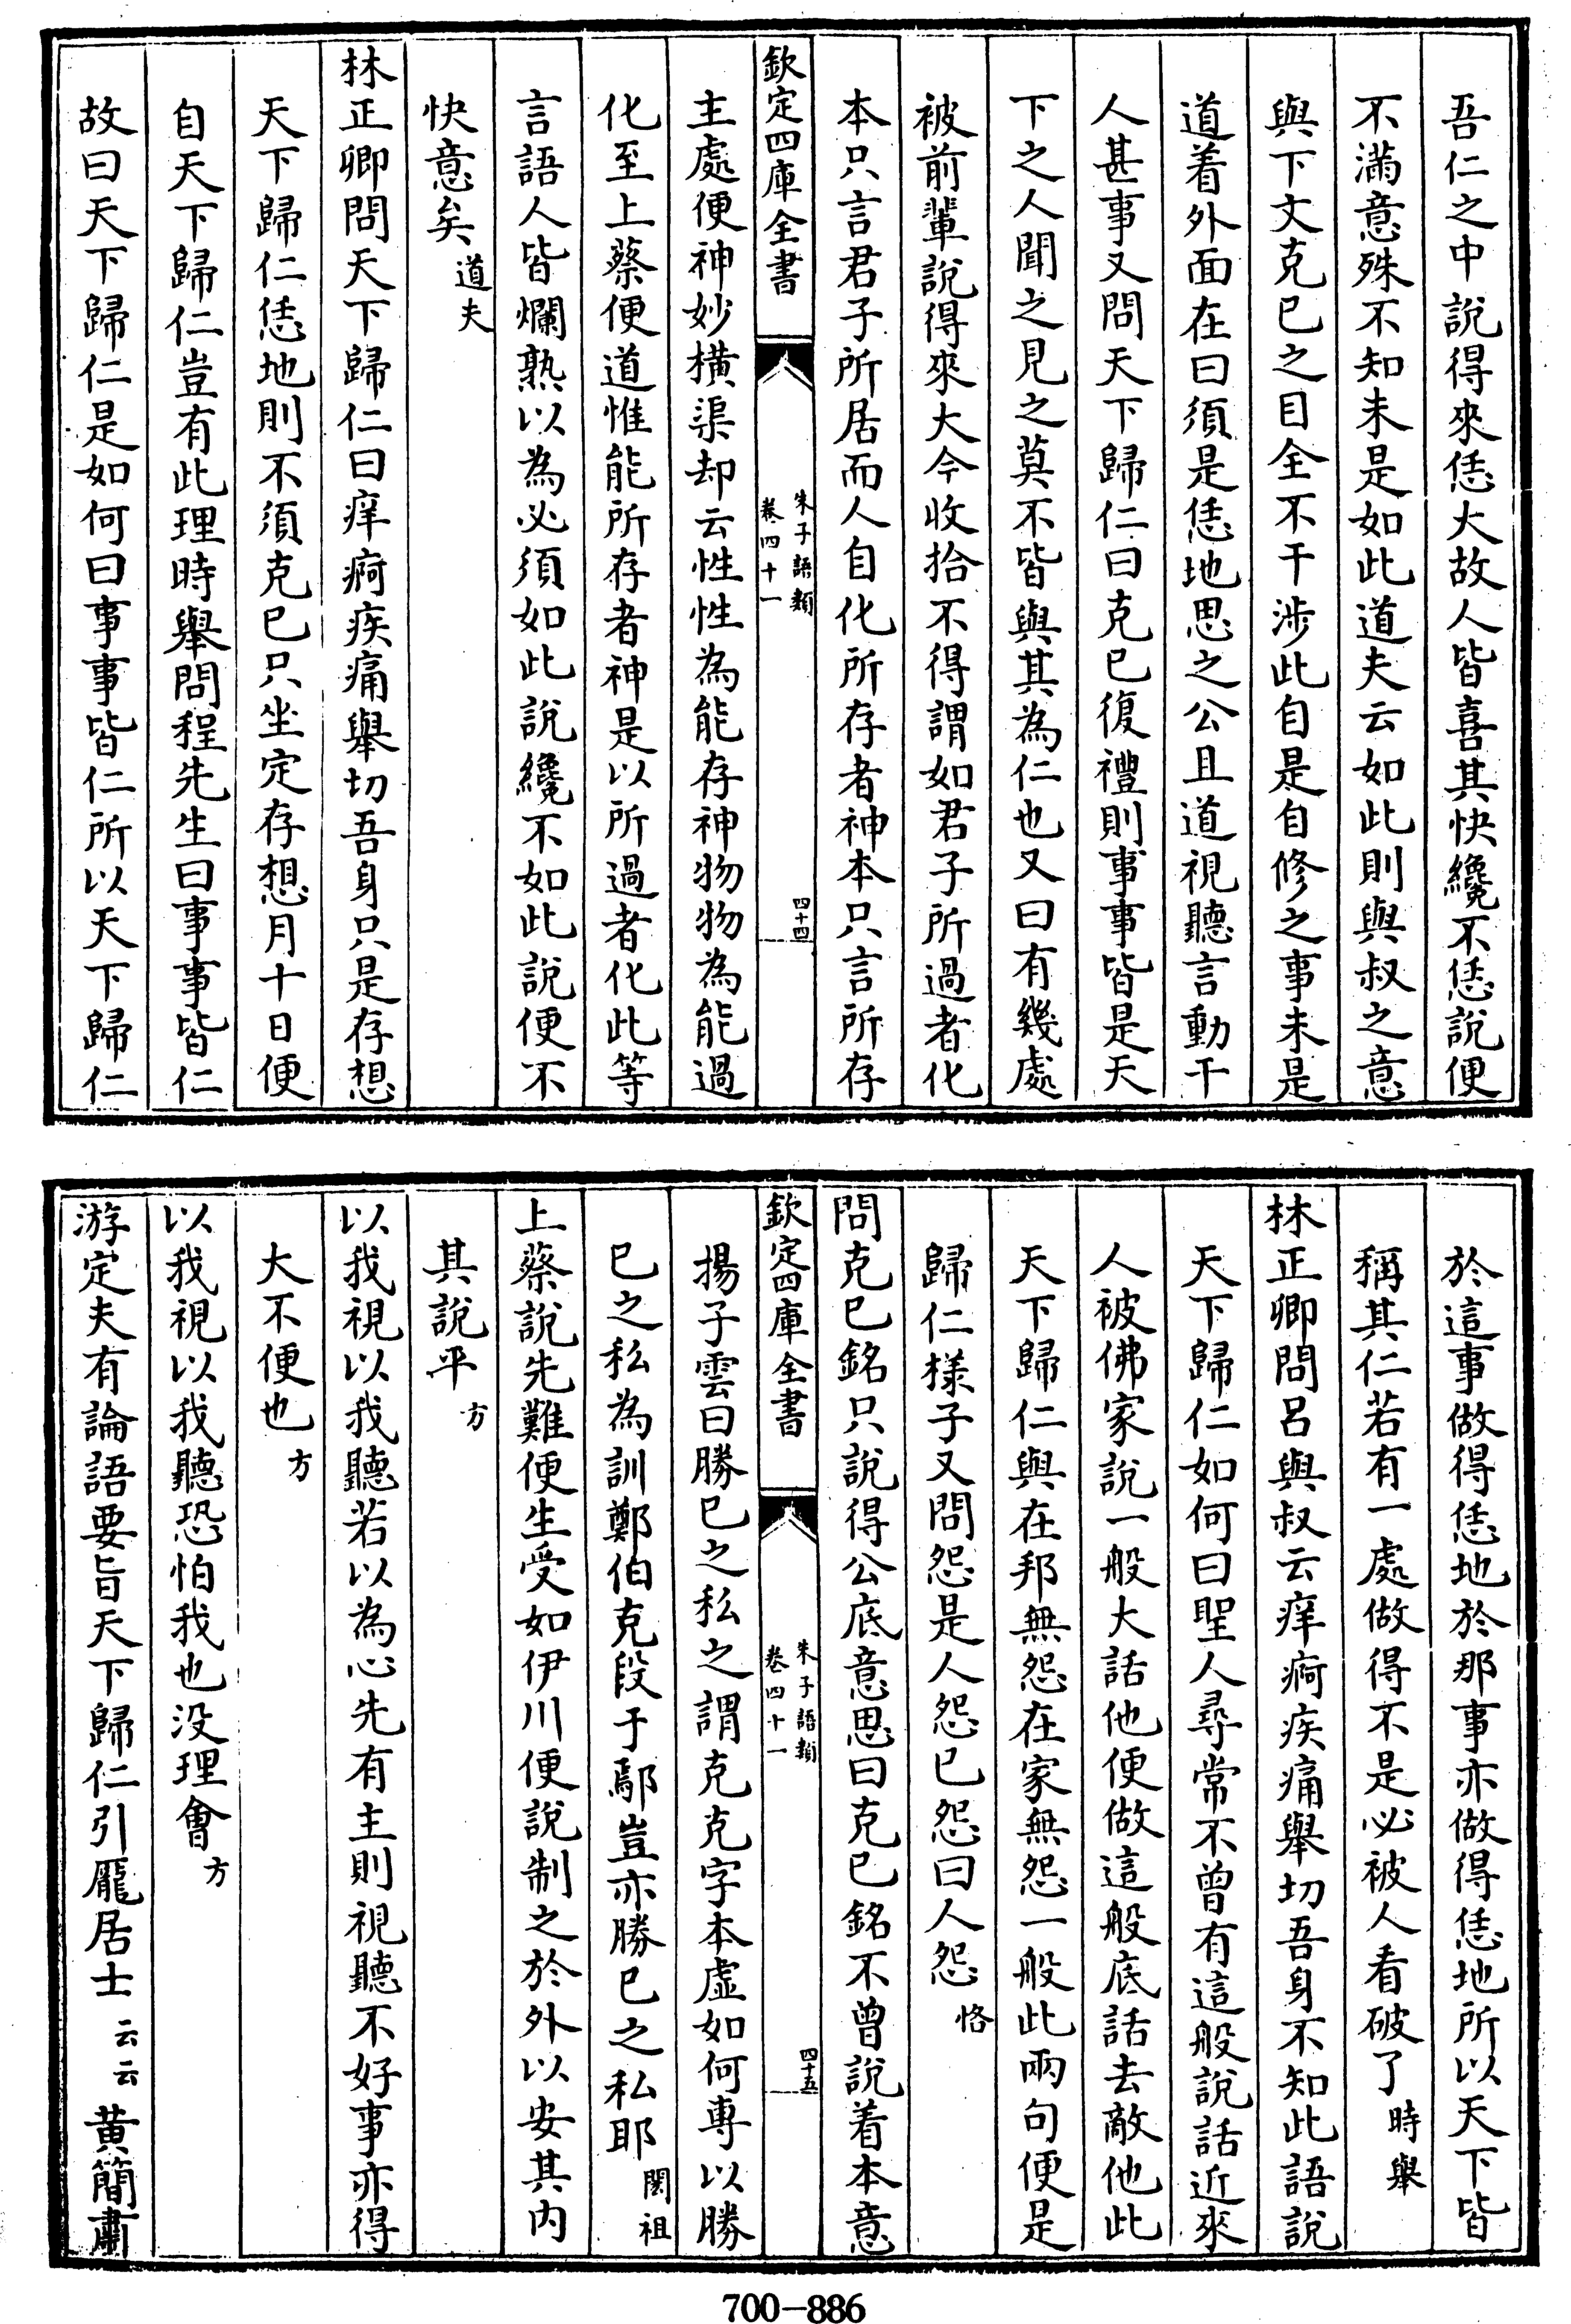 吾仁之中說得來恁大故人皆喜其快纔不恁說便
不滿意殊不知未是如此道夫云如此則與叔之意
與下文克已之目全不干涉此自是自修之事未是
道着外面在曰須是恁地思之公且道視聽言動干
人甚事又問天下歸仁曰克已復禮則事事皆是天
下之人聞之見之莫不皆與其為仁也又曰有幾處
被前輩說得來大今收拾不得謂如君子所過者化
本只言君子所居而人自化所存者神本只言所存
欽定四庫全書
朱子語類
卷四十一
四十四
主處便神妙橫渠却云性性為能存神物物為能過
化至上蔡便道惟能所存者神是以所過者化此等
言語人皆爛熟以為必須如此說纔不如此說便不
快意矣道夫
林正卿問天下歸仁曰痒疴疾痛舉切吾身只是存想
天下歸仁恁地則不須克已只坐定存想月十日便
自天下歸仁豈有此理時舉問程先生曰事事皆仁
故曰天下歸仁是如何曰事事皆仁所以天下歸仁
於這事做得恁地於那事亦做得恁地所以天下皆
稱其仁若有一處做得不是必被人看破了時舉
林正卿問呂與叔云痒疴疾痛舉切吾身不知此語說
天下歸仁如何曰聖人尋常不曾有這般說話近來
人被佛家說一般大話他便做這般底話去敵他此
天下歸仁與在邦無怨在家無怨一般此兩句便是
歸仁樣子又問怨是人怨已怨曰人怨恪
問克已銘只說得公底意思曰克已銘不曾說着本意
欽定四庫全書
朱子語類
卷四十一
四十五
揚子雲曰勝已之私之謂克克字本虛如何專以勝
已之私為訓鄭伯克段于鄢豈亦勝已之私耶閎祖
上蔡說先難便生受如伊川便說制之於外以安其內
其說平方
以我視以我聽若以為心先有主則視聽不好事亦得
大不便也方
以我視以我聽恐怕我也没理會方
游定夫有論語要旨天下歸仁引龐居士云云黄簡肅
700-886